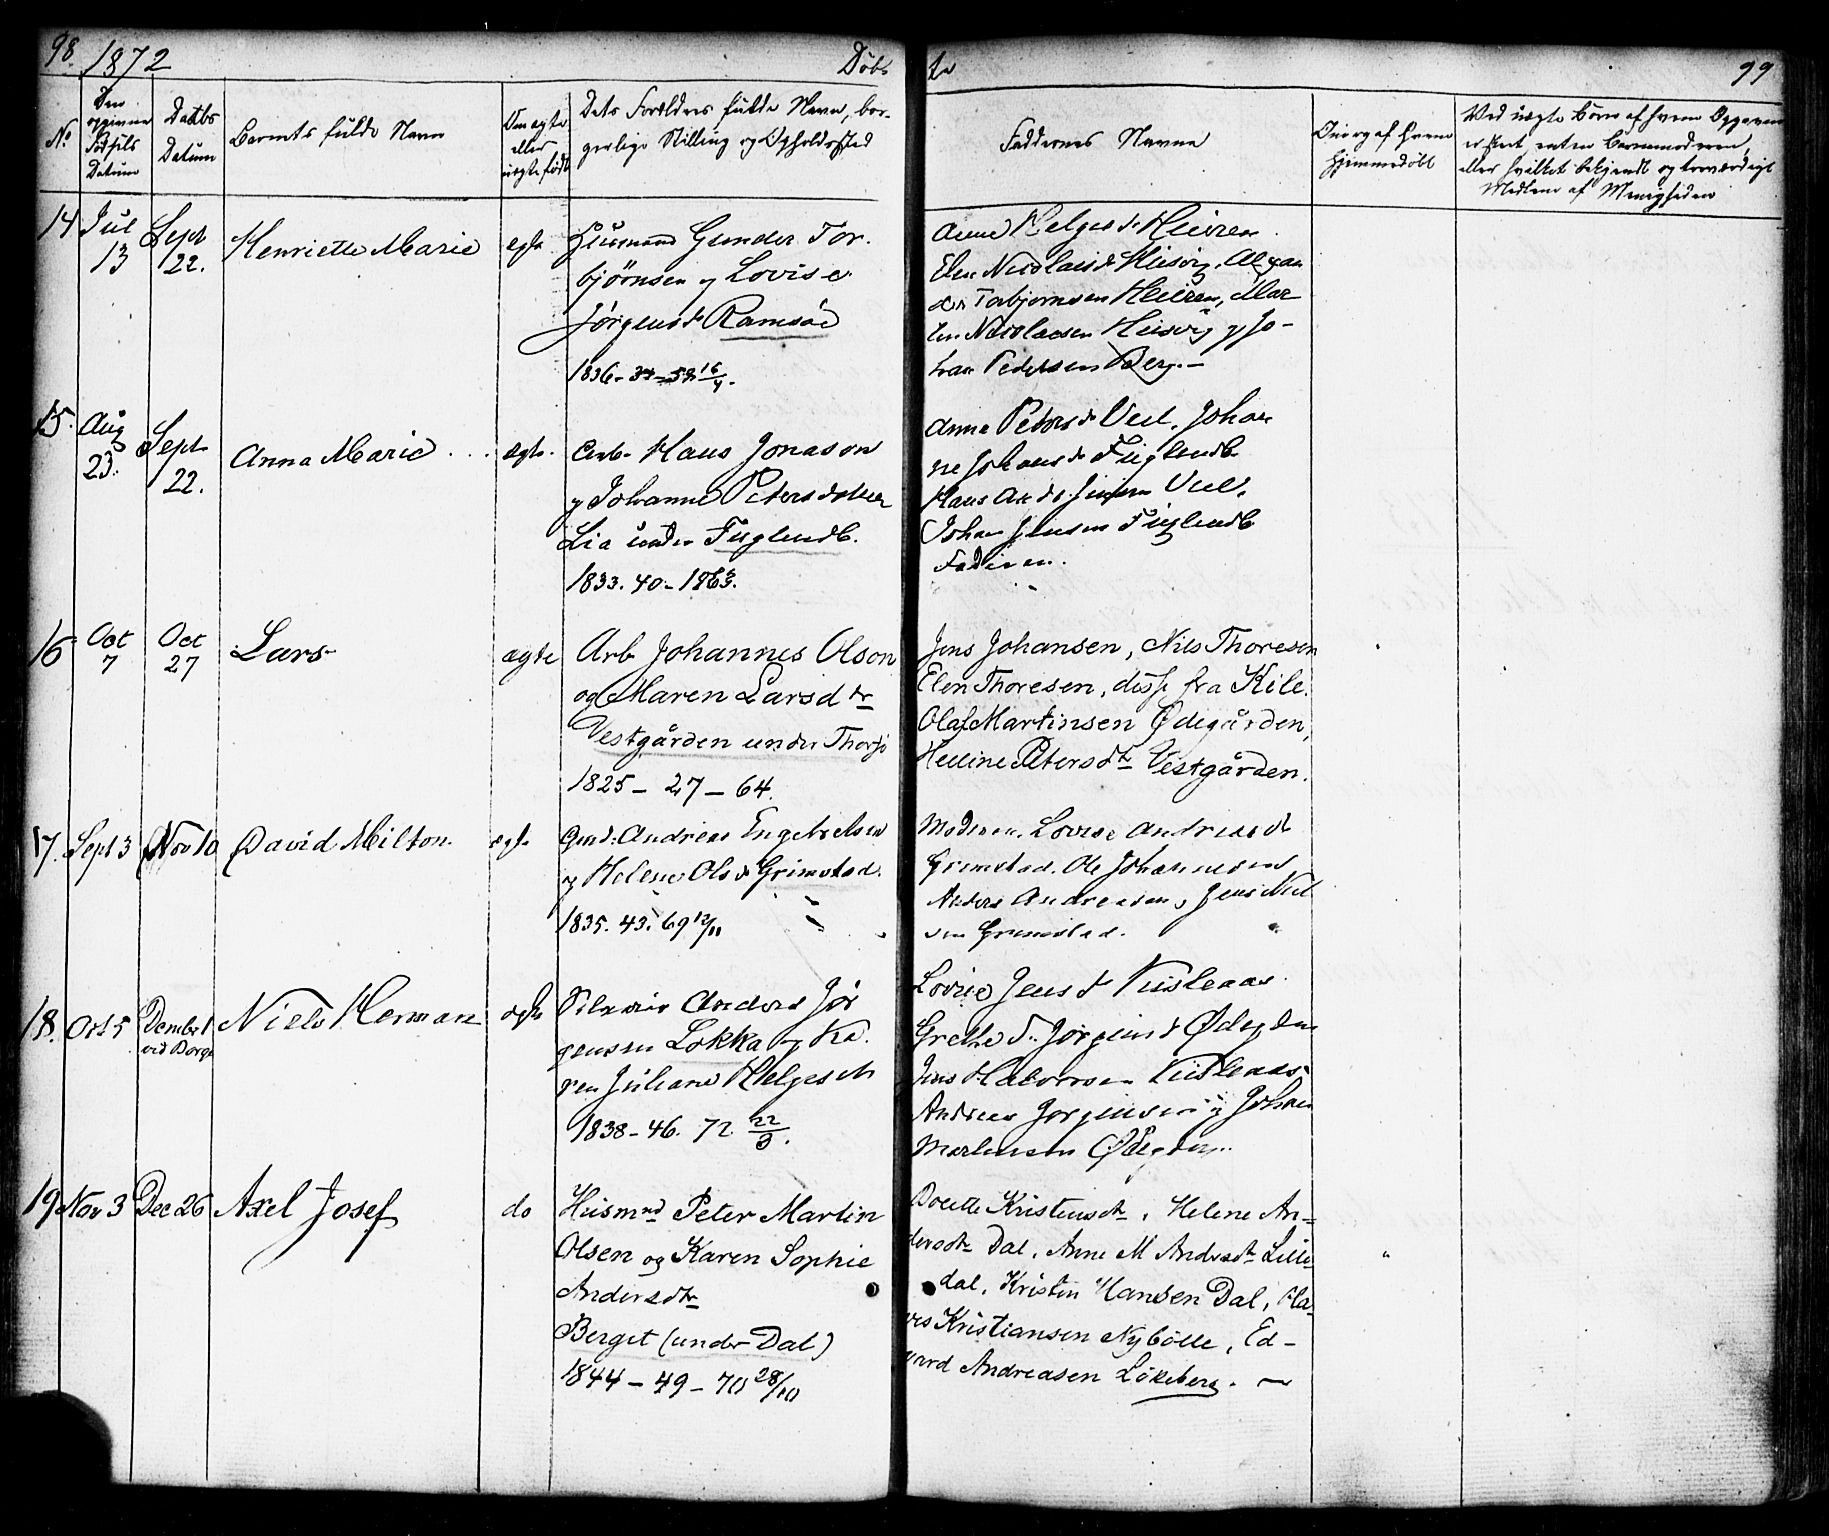 98. 1872 Döbte 99
No
Den opgivne Födsels Datum
Daabs Datum
Barnets fulde Navn
Om ægte eller uægte födt
Dets Forældres fulde Navn, borgerlige Stilling og Opholdssted
Faddernes Navne
Om og af hvem hjemmedöbt
Ved uægte Börn af hvem Opgaven er skeet, enten Barnemoderen, eller hvilket bekjendt og troværdigt Medlem af Menigheden
14 Jul 13 Sept 22. Henriette Marie egte
Husmand Gunder Tor-
bjørnsen og Lovise
Jørgensdr Ramsøe
1836 - 34 - 58 16/4.
Anne Helgesdr Hueren
Elen Nicolaisdr Husvig, Alexan
der Torbjornsen Hueren, Mar
ten Nicolaesen Husvig og Jo-
han Pedersen Berg. -
15. Aug 23. Sept 22. Anna Marie ægte.
Arb. Hans Jonason
og Johanne Petersdatter
Lia under Fuglendb.
1833. 40 - 1863.
Anna Petersdr Vul, Johan
ne Johansdr Fuglendb
Hans Vul,
Johan Jensen Fuglendb
Faderen.
16 Oct 7 Oct 27 Lars ægte
Arb Johannes Olson
og Maren Larsdtr
Vestgården under Thorsø
1825 - 27 - 64.
Jens Johansen, Nils Thoresen
Elen Thoresen, disse fra Kile.
Olaf Martinsen Ødegården,
Helline Petersdtr Vestgården.
17. Sept 3 Nov 10 David Milton. egte
Grd. Andreas Engebretsen
og Helene Olsdr Grimstad.
1835. 43. 69 12/11
Moderen, Lovise Andreasdr
Grimstad. Ole Johannesen
Anders Andreasen, Jens Niel
sen Grimstad.
18. Oct 5 Dcmbr 1 vid Borge Niels Herman egte
Anders Jör
gensen Lokka og Ka
ren Juliane Helgesdtr
1838 - 46. 72 22/3.
Lovise Jensdr Kusleaas
Grethe S. Jörgensdr Ødegden
Jens Halvorsen Kusleaas
Andreas Jorgensen og Johan
Martensen Ødegden.
19 Nov 3 Dec 26 Axel Josef do
Husmnd Peter Martin
Olsen og Karen Sophie
Andersdtr
Berget (under Dal)
1844 - 49 - 70 28/10
Dorette Kristensdtr, Helene An-
dersdtr Dal, Anne M Andrsdtr Lille
dal, Kristen Hansen Dal, Ha-
Kristiansen Nybölle, Ed-
vard Andreasen Lökeberg. -